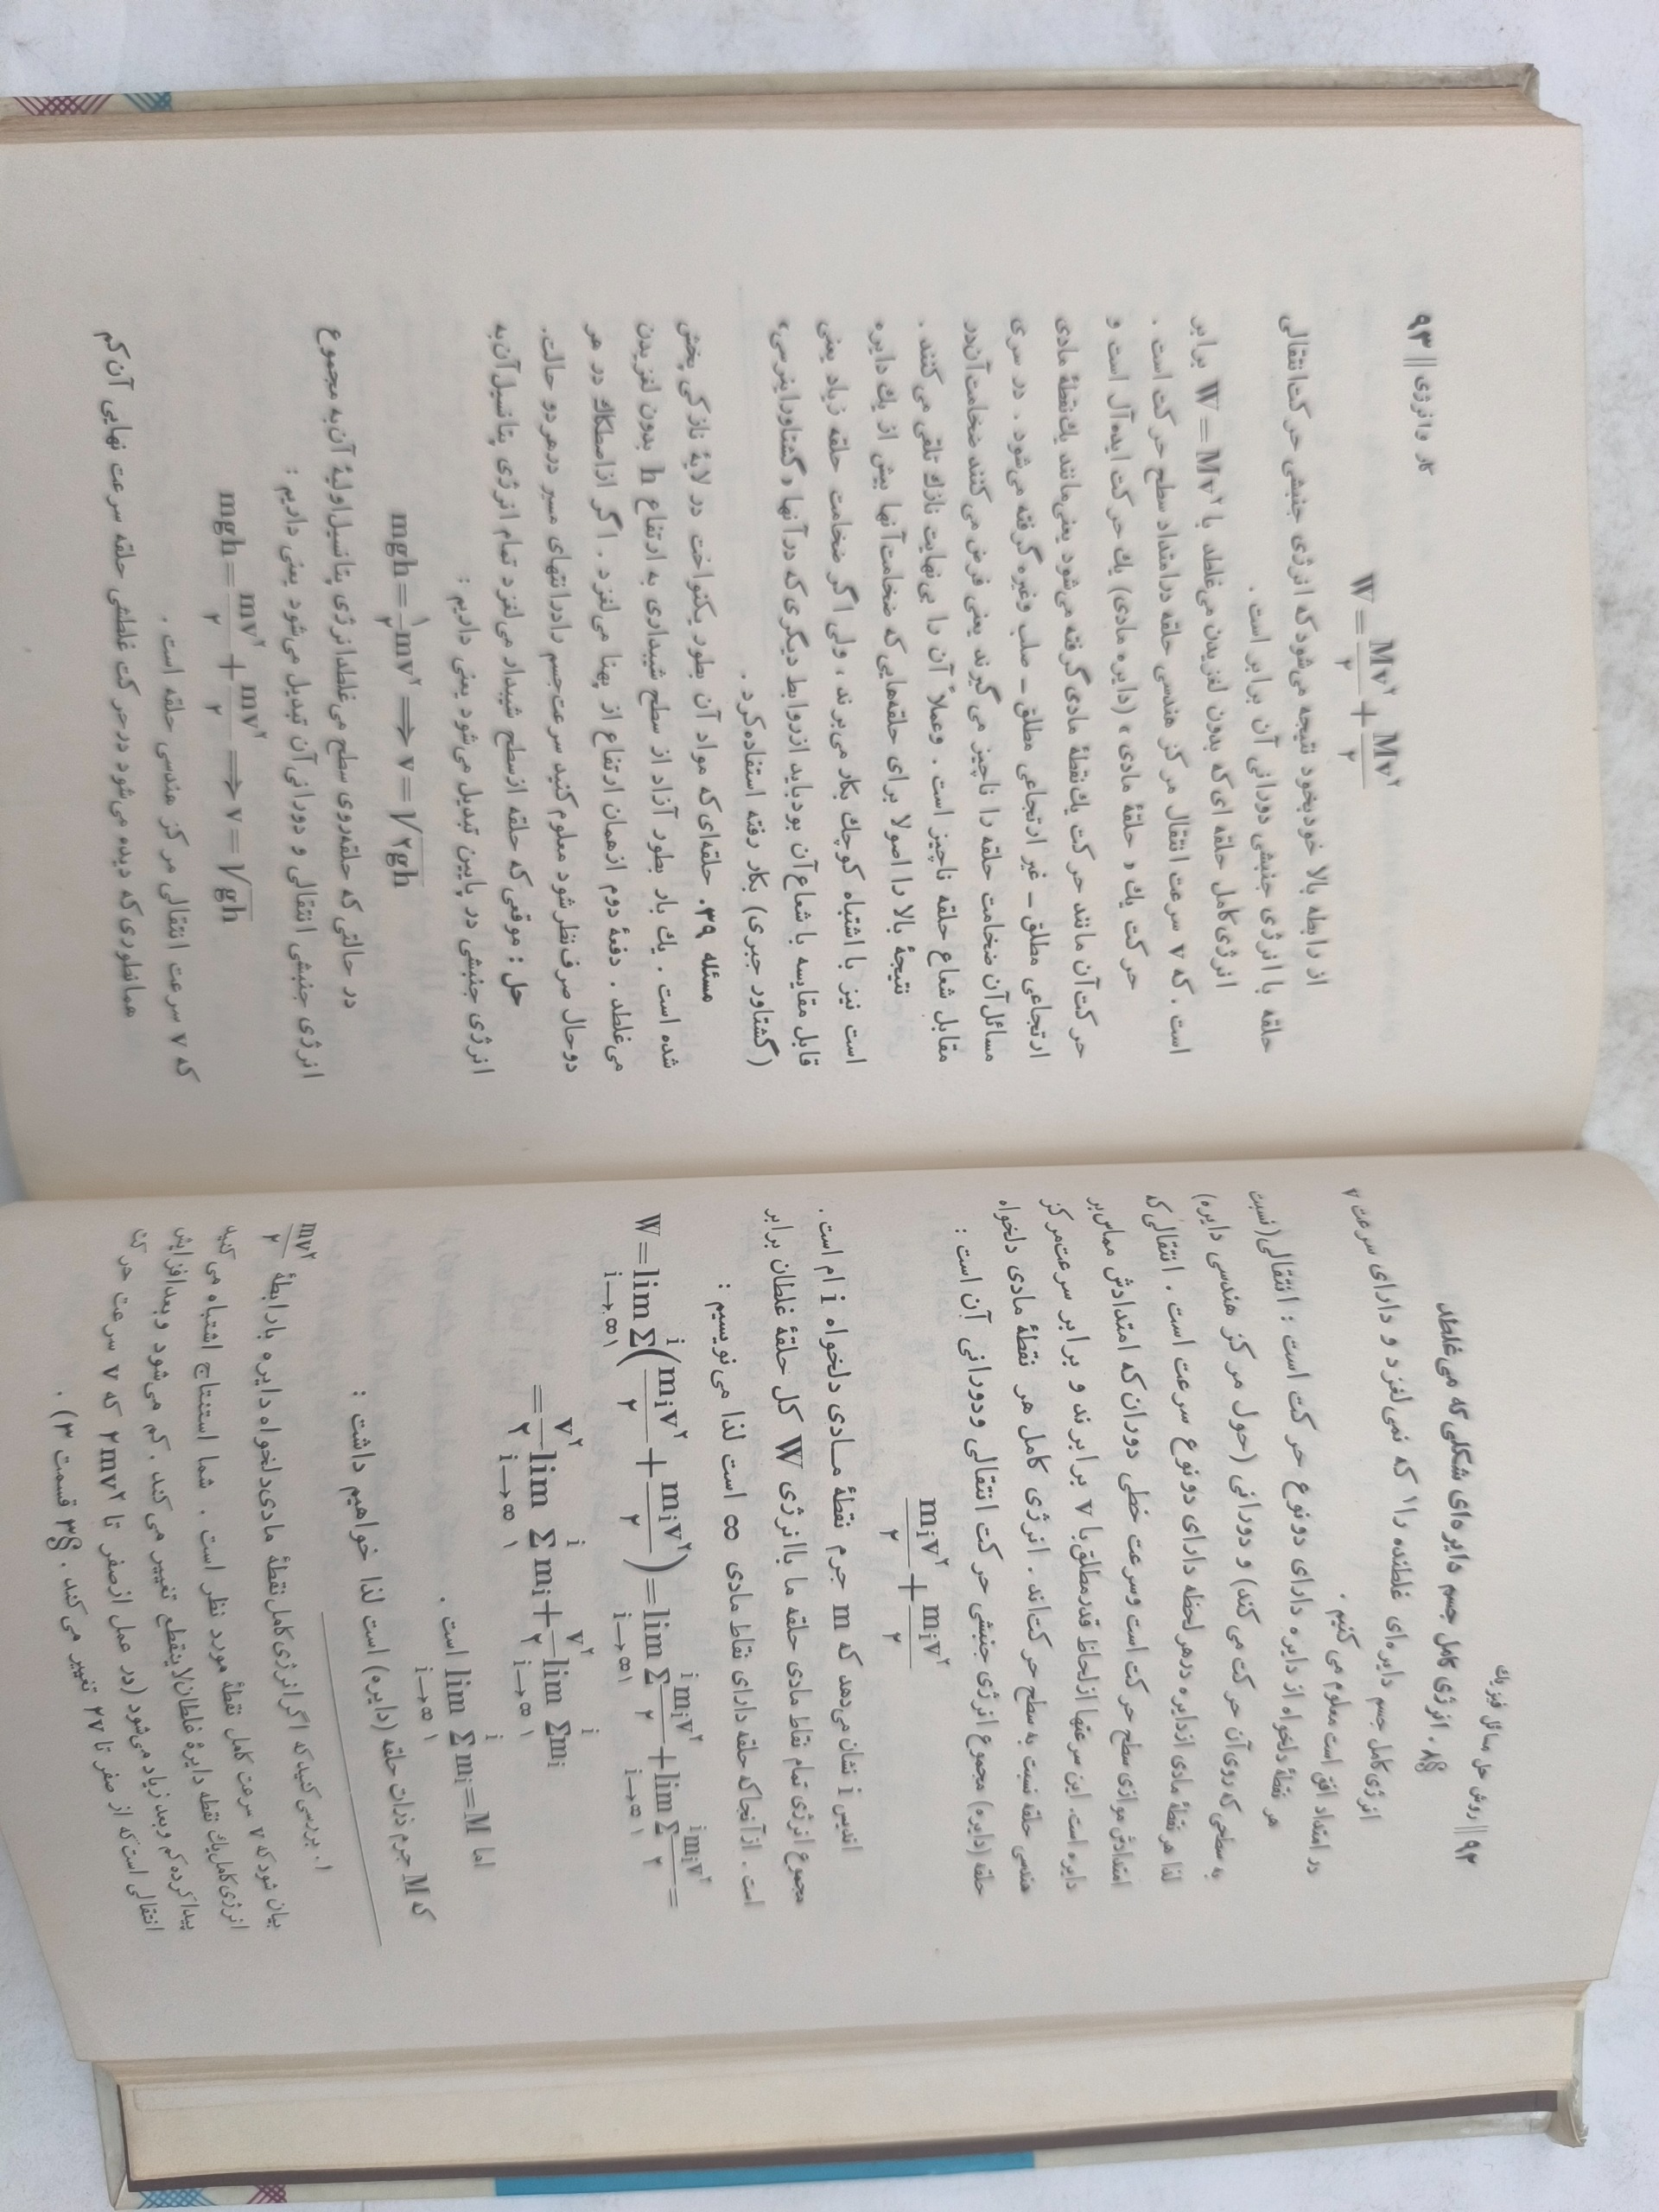 ۹۲ || روش حل مسائل فیزیك
§۸. انرژی کامل جسم دایره‌ای شکلی که می‌غلطد
انرژی کامل جسم دایره‌ای غلطنده را۱ که نمی‌لغزد و دارای سرعت v
در امتداد افق است معلوم می‌کنیم.
هر نقطهٔ دلخواه از دایره دارای دو نوع حرکت است: انتقالی (نسبت
به سطحی که روی آن حرکت می‌کند) و دورانی (حول مرکز هندسی دایره)
لذا هر نقطهٔ مادی از دایره در هر لحظه دارای دو نوع سرعت است. انتقالی که
امتدادش موازی سطح حرکت است و سرعت خطی دوران که امتدادش مماس بر
دایره است. این سرعتها از لحاظ قدر مطلق با v برابرند و برابر سرعت مرکز
هندسی حلقه نسبت به سطح حرکت‌اند. انرژی کامل هر نقطهٔ مادی دلخواه
حلقه (دایره) مجموع انرژی جنبشی حرکت انتقالی و دورانی آن است:
mᵢv²/۲ + mᵢv²/۲
اندیس i نشان می‌دهد که m جرم نقطهٔ مادی دلخواه i ام است.
مجموع انرژی تمام نقاط مادی حلقه ما با انرژی W کل حلقهٔ غلطان برابر
است. از آنجا که حلقه دارای نقاط مادی ∞ است لذا می‌نویسیم:
W = lim i→∞ Σ₁ⁱ (mᵢv²/۲ + mᵢv²/۲) = lim i→∞ Σ₁ⁱ mᵢv²/۲ + lim i→∞ Σ₁ⁱ mᵢv²/۲ =
= v²/۲ lim i→∞ Σ₁ⁱ mᵢ + v²/۲ lim i→∞ Σ₁ⁱ mᵢ
اما lim i→∞ Σ₁ⁱ mᵢ = M است.
که M جرم ذرات حلقه (دایره) است لذا خواهیم داشت:
۱. بررسی کنید که اگر انرژی کامل نقطهٔ مادی دلخواه دایره با رابطهٔ mv²/۲
بیان شود که v سرعت کامل نقطهٔ مورد نظر است. شما استنتاج اشتباه می‌کنید
انرژی کامل یك نقطه دایرهٔ غلطان لاینقطع تغییر می‌کند. کم می‌شود و بعد افزایش
پیدا کرده کم و بعد زیاد می‌شود (در عمل از صفر تا ۲mv² که v سرعت حرکت
انتقالی است که از صفر تا ۲v تغییر می‌کند. §۳ قسمت ۳).
کار و انرژی || ۹۳
W = Mv²/۲ + Mv²/۲
از رابطه بالا خود بخود نتیجه می‌شود که انرژی جنبشی حرکت انتقالی
حلقه با انرژی جنبشی دورانی آن برابر است.
انرژی کامل حلقه ای که بدون لغزیدن می‌غلطد با W=Mv² برابر
است. که v سرعت انتقال مرکز هندسی حلقه در امتداد سطح حرکت است.
حرکت یك «حلقهٔ مادی» (دایره مادی) یك حرکت ایده‌آل است و
حرکت آن مانند حرکت یك نقطهٔ مادی گرفته می‌شود یعنی مانند یك نقطهٔ مادی
ارتجاعی مطلق – غیر ارتجاعی مطلق – صلب وغیره گرفته می‌شود. در سری
مسائل آن ضخامت حلقه را ناچیز می‌گیرند یعنی فرض می‌کنند ضخامت آن در
مقابل شعاع حلقه ناچیز است. وعملاً آن را بی‌نهایت نازك تلقی می‌کنند.
نتیجهٔ بالا را اصولا برای حلقه‌هایی که ضخامت آنها بیش از یك دایره
است نیز با اشتباه کوچك بکار می‌برند، ولی اگر ضخامت حلقه زیاد یعنی
قابل مقایسه با شعاع آن بود باید از روابط دیگری که در آنها «گشتاور اینرسی»
(گشتاور جبری) بکار رفته استفاده کرد.
مسئله ۳۹. حلقه‌ای که مواد آن بطور یکنواخت در لایهٔ نازکی پخش
شده است. یك بار بطور آزاد از سطح شیبداری به ارتفاع h بدون لغزیدن
می‌غلطد. دفعهٔ دوم ازهمان ارتفاع از پهنا می‌لغزد. اگر از اصطکاك در هر
دوحال صرف نظر شود معلوم کنید سرعت جسم را در انتهای مسیر در هر دو حالت.
حل: موقعی که حلقه از سطح شیبدار می‌لغزد تمام انرژی پتانسیل آن به
انرژی جنبشی در پایین تبدیل می‌شود یعنی داریم:
mgh = ۱/۲ mv² ⟹ v = √۲gh
در حالتی که حلقه روی سطح می‌غلطد انرژی پتانسیل اولیهٔ آن به مجموع
انرژی جنبشی انتقالی و دورانی آن تبدیل می‌شود یعنی داریم:
mgh = mv²/۲ + mv²/۲ ⟹ v = √gh
که v سرعت انتقالی مرکز هندسی حلقه است.
همانطوری که دیده می‌شود درحرکت غلطشی حلقه سرعت نهایی آن کم